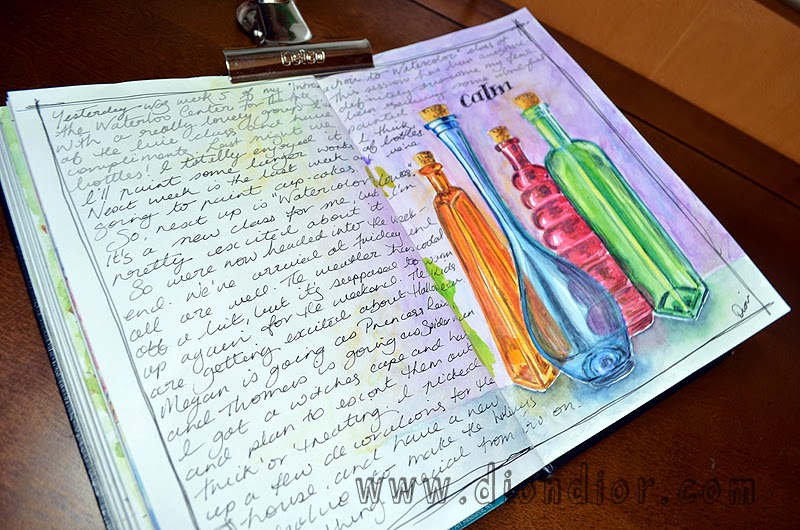 Yesterday was week 5 of my "Introduction to Watercolor" class at
the Waterloo Center for the Arts. This session has been awesome
with a really lovely group
of the
compliments. Last night we painted
bottles! I totally enjoyed it. I think
I'll paint some larger works of bottles.
Next week is the last week and we're
going to paint cup-cakes.
So, next up is "Watercolor Loves".
It's a new class for me, but I'm
pretty excited about it.
So we're now headed into the week
end. We've arrived at Friday and
all are well. The weather has cooled
off a bit, but it's suppposed to warm
up again for the weekend. The kids
are getting excited about Halloween.
Megan is going as Princess Leia
and Thomas is going as Spiderman
I got a witches cape and hat
and plan to escort them out
trick or treating. I picked
up a few decorations for the
house, and have a new
resolve to make the holidays
special from now on.
calm
Dion
www.diondior.com